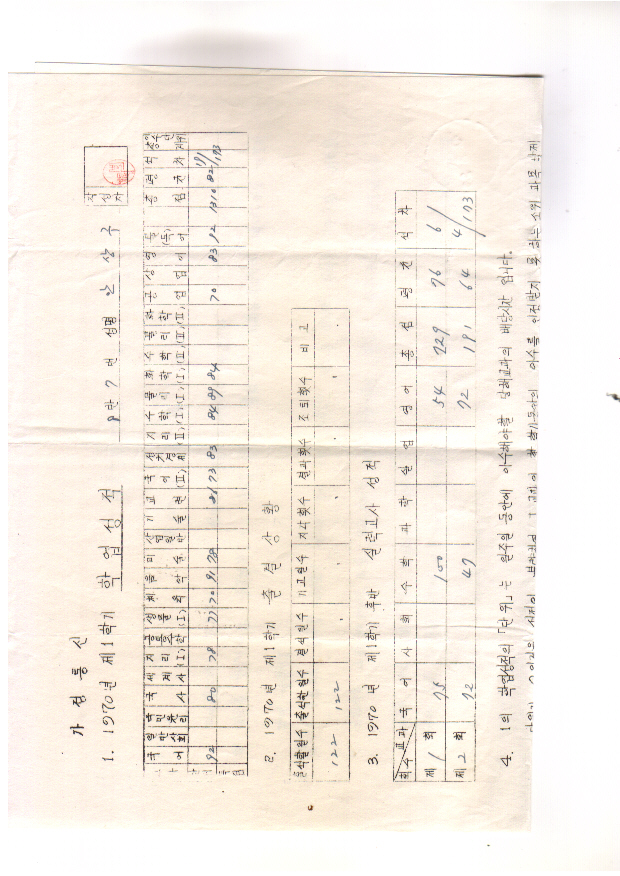 가정통신
1. 1970년 제1학기 학업성적 8반 7번 성명 안상구 작성자
국어 일반사회 국민윤리 국사 세계사 지리(I) 공통수학 생물(I) 체육 음악 미술 산업일반 기술 교련 국어(II) 정치경제 지리(II) 수학(I) 물리(I) 화학(I) 수학(II) 물리(II) 화학(II) 공업 상업 영어 독(독)어 총점 평균 석차
92 80 78 77 70 91 78 86 73 83 84 89 84 70 83 92 1310 82 /193
2. 1970년 제1학기 출결상황
출석할일수 출석한일수 결석일수 기고일수 지각횟수 결과횟수 조퇴횟수 비고
122 122
3. 1970년 제1학기 후반 실력고사 성적
회수 교과 국어 사회 수학 과학 실업 영어 총점 평균 석차
제1회 75 100 54 229 76 6/
제2회 72 47 72 191 64 4/173
4. 1의 학업성적의 「단위」는 일주일 동안에 이수해야할 당해교과의 배당시간 입니다.